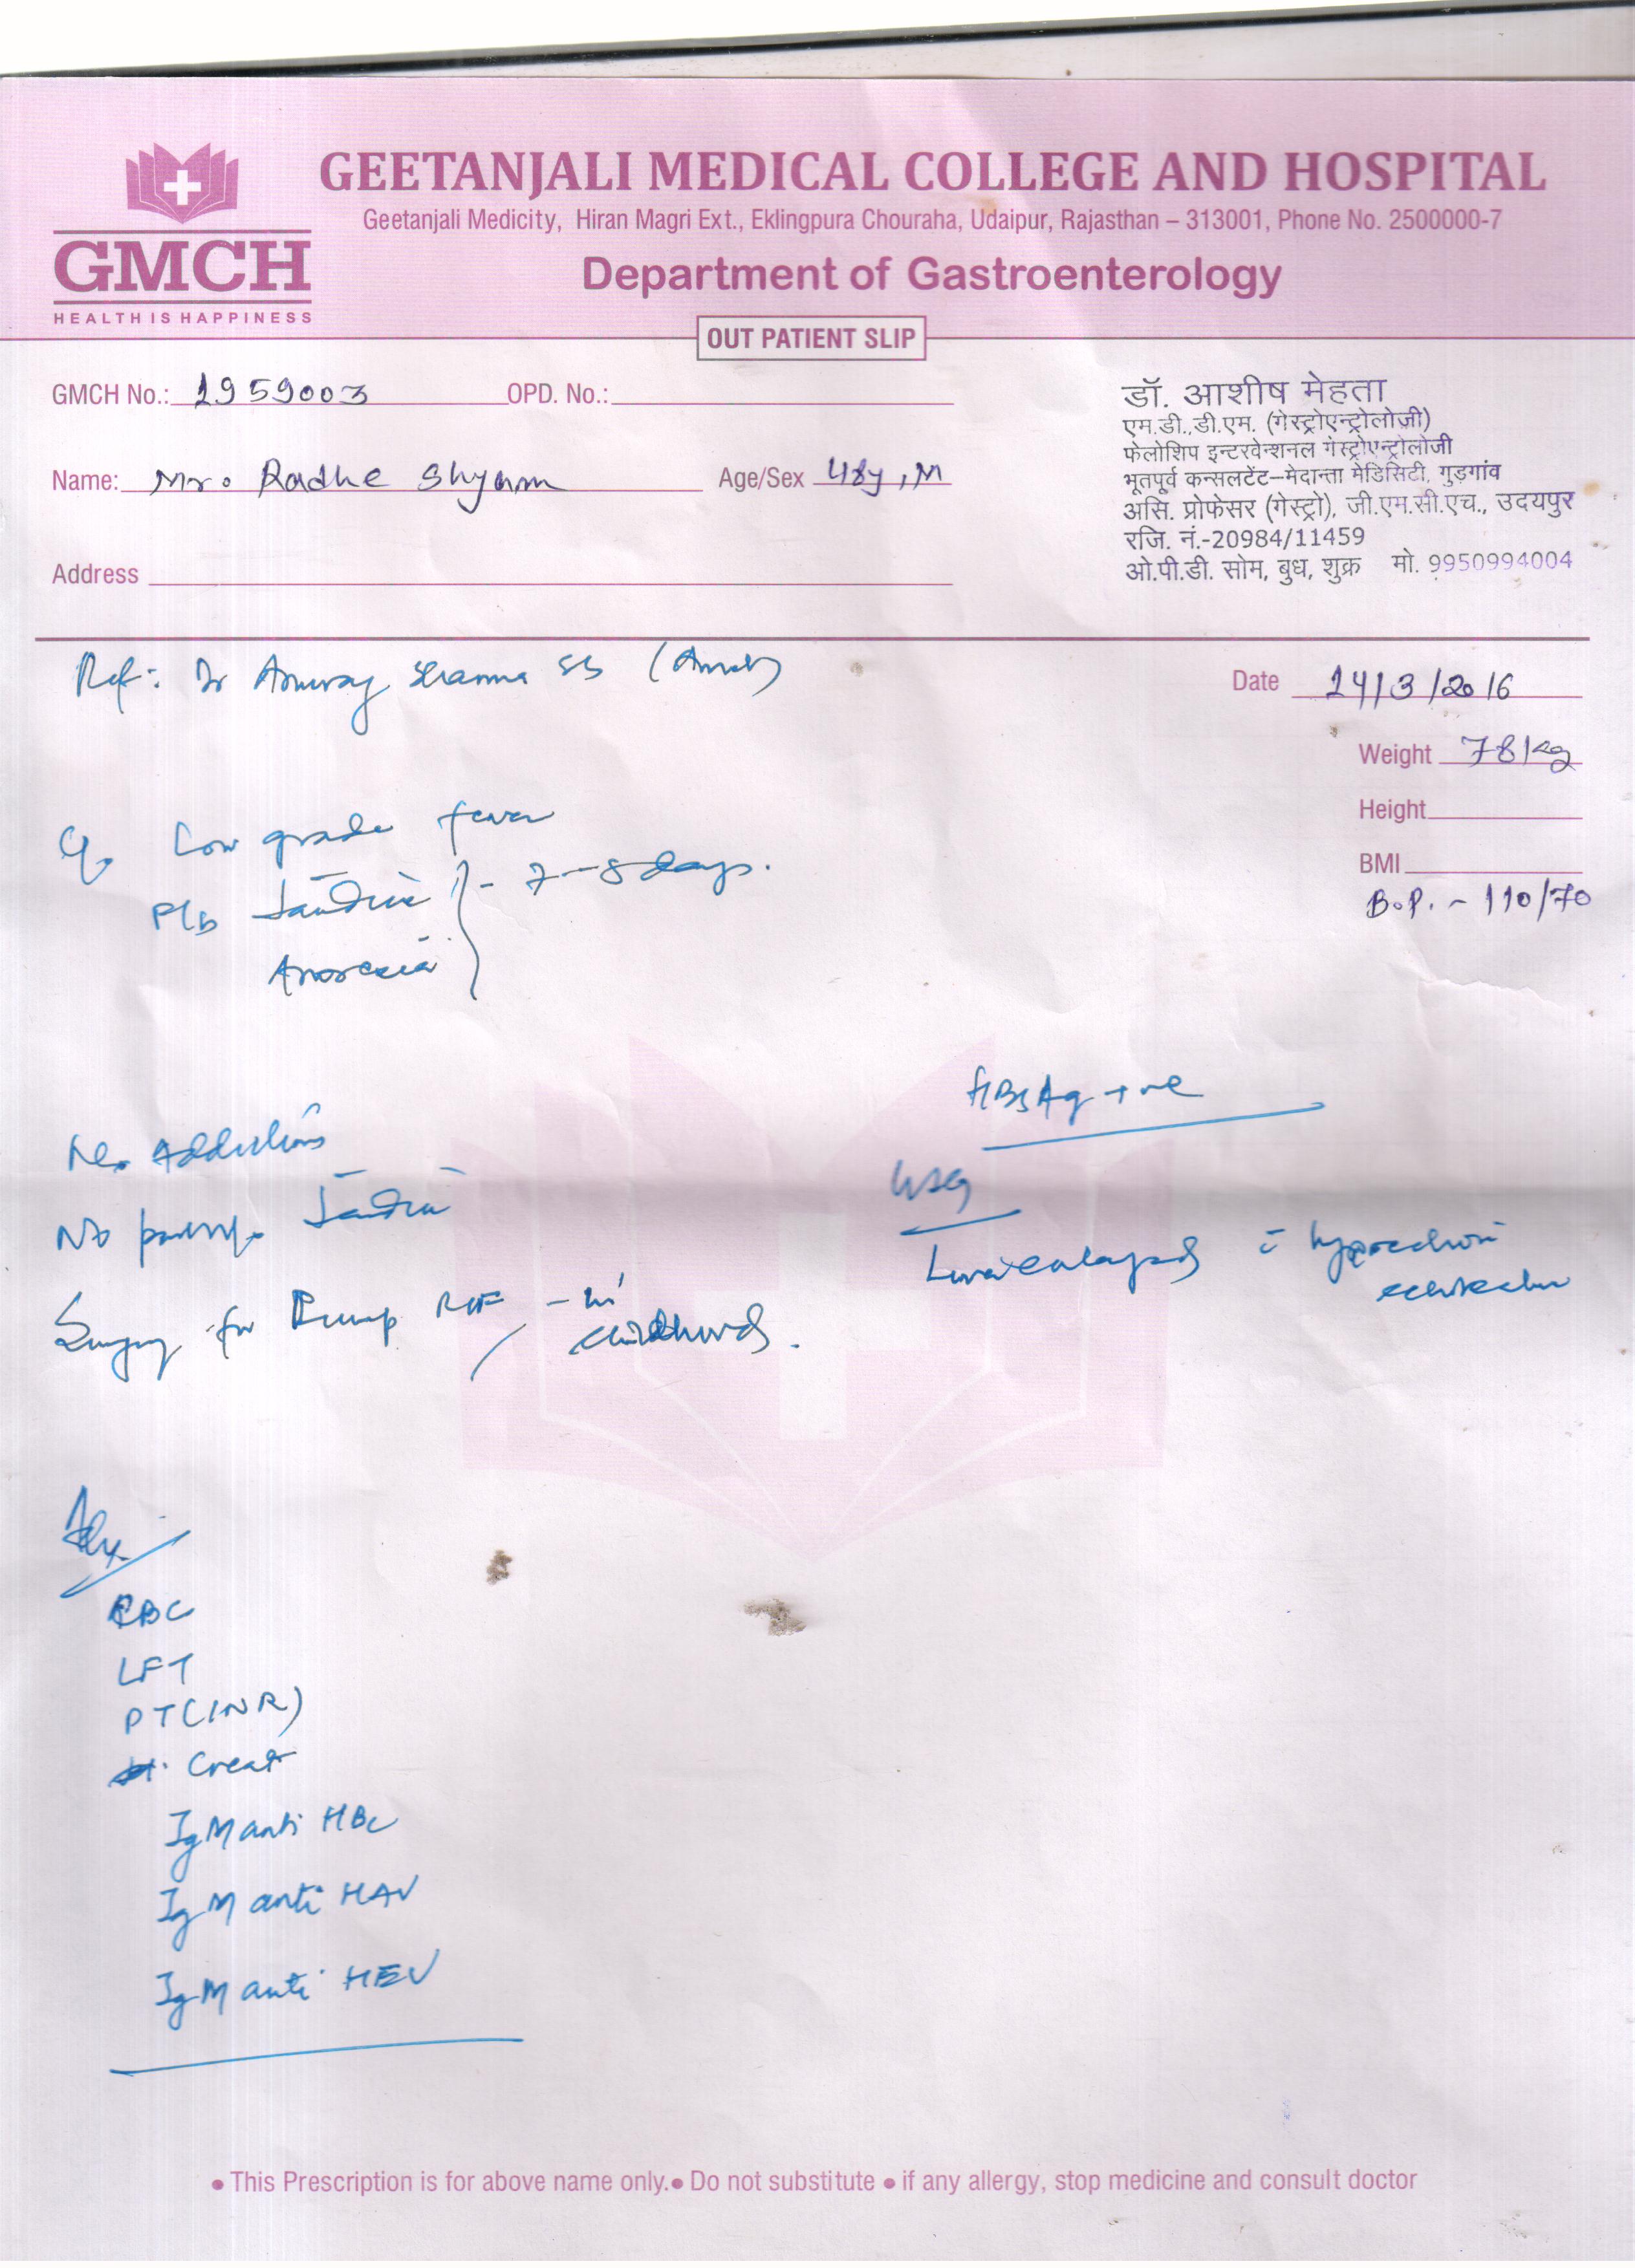 GEETANJALI MEDICAL COLLEGE AND HOSPITAL
Geetanjali Medicity, Hiran Magri Ext., Eklingpura Chouraha, Udaipur, Rajasthan – 313001, Phone No. 2500000-7
GMCH
HEALTH IS HAPPINESS
Department of Gastroenterology
OUT PATIENT SLIP
GMCH No.: 1959003 OPD. No.:
Name: Mr. Radhe Shyam Age/Sex 48y, M
Address
डॉ. आशीष मेहता
एम.डी.,डी.एम. (गेस्ट्रोएन्ट्रोलोज़ी)
फेलोशिप इन्टरवेन्शनल गेस्ट्रोएन्ट्रोलोजी
भूतपूर्व कन्सलटेंट–मेदान्ता मेडिसिटी, गुड़गांव
असि. प्रोफेसर (गेस्ट्रो), जी.एम.सी.एच., उदयपुर
रजि. नं.-20984/11459
ओ.पी.डी. सोम, बुध, शुक्र मो. 9950994004
Ref: Dr Anurag Sharma
Date 14/3/2016
Weight 78 kg
Height
BMI
B.P. - 110/70
C/o Low grade fever
Jaundice - 7-8 days.
Anorexia
HBsAg +ve
No Addictions
No Jaundice
USG
Surgery for - in childhood.
Liver enlarged c
Adv.
CBC
LFT
PT(INR)
Creat
IgM anti HBc
IgM anti HAV
IgM anti HEV
• This Prescription is for above name only. • Do not substitute • if any allergy, stop medicine and consult doctor